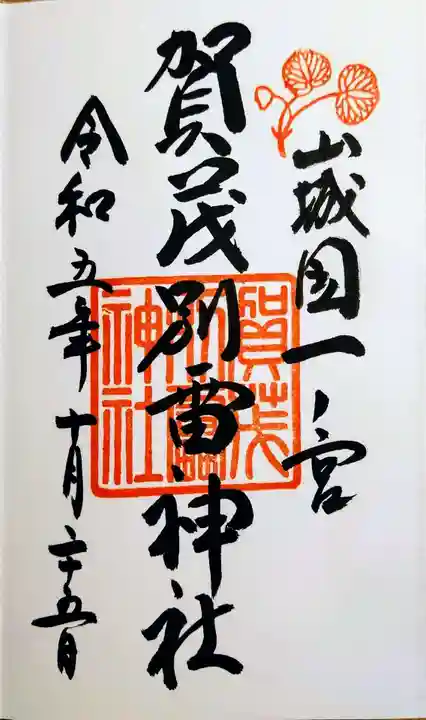 山城国一ノ宮
賀茂別雷神社
賀茂
別雷
神社
令和五年十月二十五日